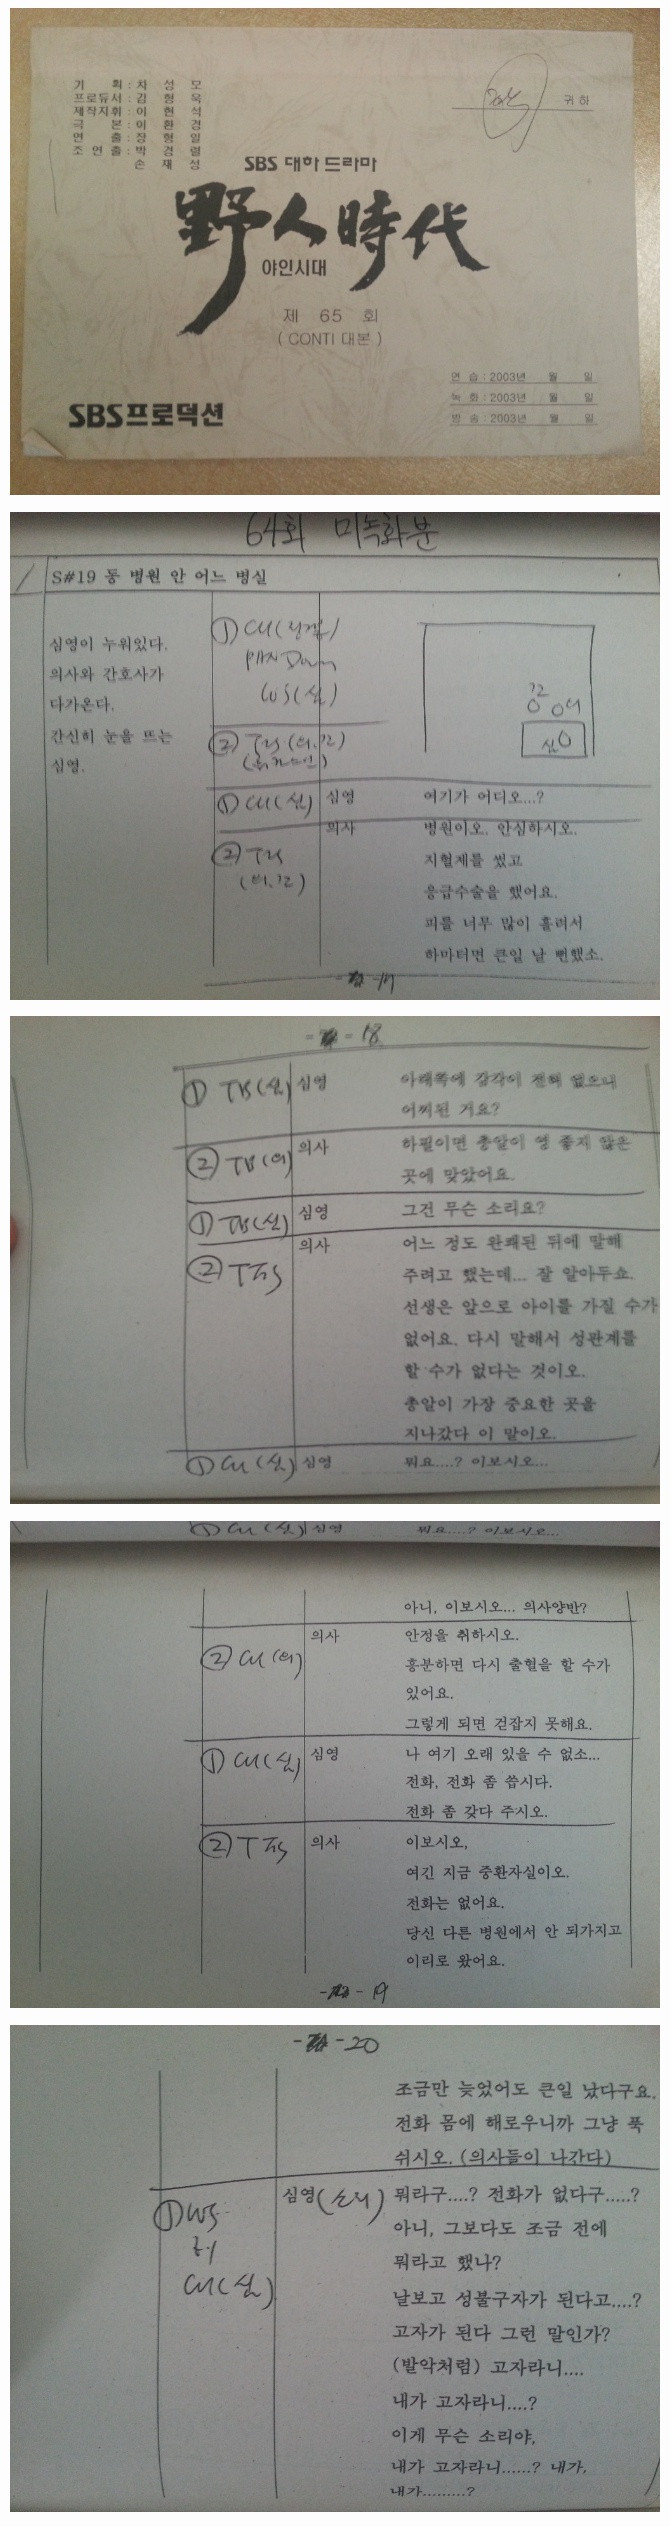 기 획 : 차 성 모
프로듀서 : 김 형 욱
제작지휘 : 이 현 석
극 본 : 이 환 경
연 출 : 장 형 일
조 연 출 : 박 경 렬
손 재 성
귀하
SBS 대하 드라마
野人時代
야인시대
제 65 회
( CONTI 대본 )
연 습 : 2003년 월 일
녹 화 : 2003년 월 일
방 송 : 2003년 월 일
SBS프로덕션
64회 미녹화분
S#19 동 병원 안 어느 병실
심영이 누워있다.
의사와 간호사가
다가온다.
간신히 눈을 뜨는
심영.
① CU
PAN Down
WS (심)
② (의.간)
간 의
심
① CU (심) 심영 여기가 어디오...?
의사 병원이오. 안심하시오.
② (의.간) 지혈제를 썼고
응급수술을 했어요.
피를 너무 많이 흘려서
하마터면 큰일 날 뻔했소.
-17
- 18
① TB (심) 심영 아래쪽에 감각이 전혀 없으니
어찌된 거요?
② TB (의) 의사 하필이면 총알이 영 좋지 않은
곳에 맞았어요.
① TB (심) 심영 그건 무슨 소리요?
의사 어느 정도 완쾌된 뒤에 말해
② 주려고 했는데... 잘 알아두쇼.
선생은 앞으로 아이를 가질 수가
없어요. 다시 말해서 성관계를
할 수가 없다는 것이오.
총알이 가장 중요한 곳을
지나갔다 이 말이오.
① CU (심) 심영 뭐요....? 이보시오...
① CU (심) 심영 뭐요....? 이보시오...
아니, 이보시오... 의사양반?
의사 안정을 취하시오.
② CU (의) 흥분하면 다시 출혈을 할 수가
있어요.
그렇게 되면 걷잡지 못해요.
① CU (심) 심영 나 여기 오래 있을 수 없소...
전화, 전화 좀 씁시다.
전화 좀 갖다 주시오.
② 의사 이보시오,
여긴 지금 중환자실이오.
전화는 없어요.
당신 다른 병원에서 안 되가지고
이리로 왔어요.
- 19
- 20
조금만 늦었어도 큰일 났다구요.
전화 몸에 해로우니까 그냥 푹
쉬시오. (의사들이 나간다)
① WS 심영 (소리) 뭐라구....? 전화가 없다구.....?
아니, 그보다도 조금 전에
뭐라고 했나?
CU (심) 날보고 성불구자가 된다고....?
고자가 된다 그런 말인가?
(발악처럼) 고자라니....
내가 고자라니....?
이게 무슨 소리야,
내가 고자라니......? 내가,
내가.........?